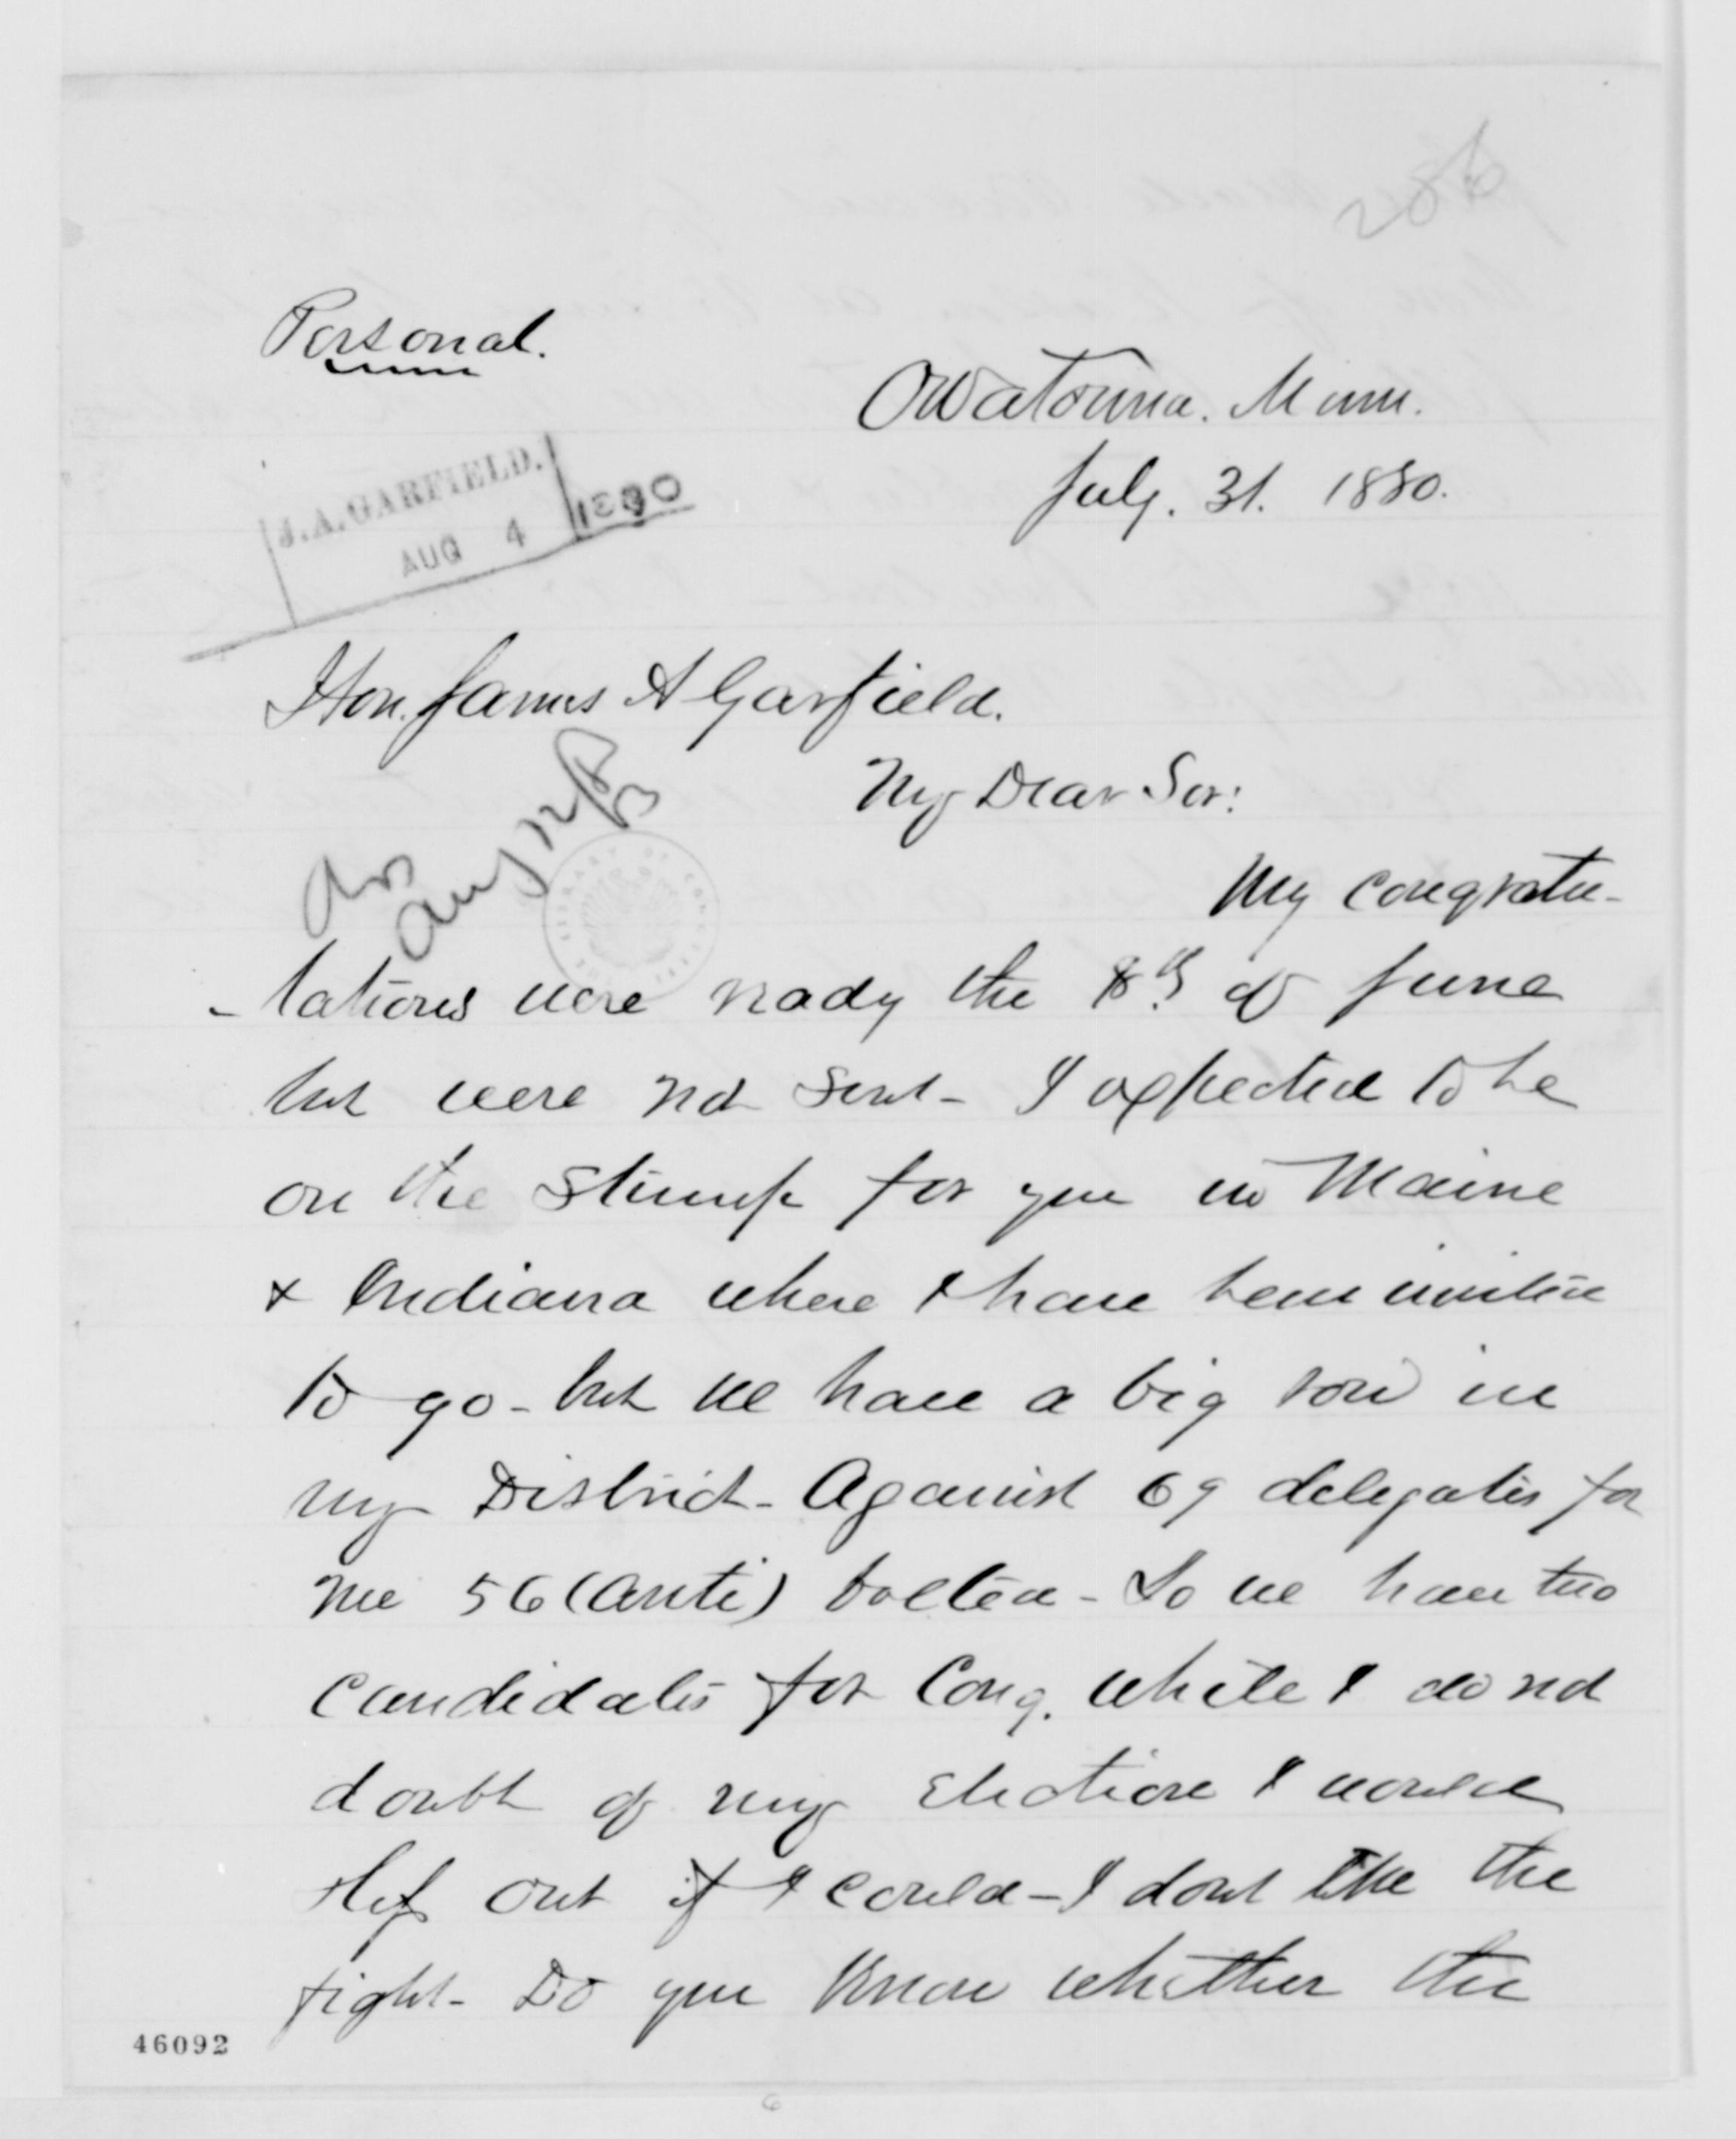 Personal.
Owatonna. Minn.
July. 31. 1880.
J.A. GARFIELD.
AUG 4 1880
Hon. James A Garfield.
My Dear Sir:
My congratu-
-lations were ready the 8th of June
but were not sent - I expected to be
on the stump for you in Maine
& Indiana where I have been invited
to go - but we have a big row in
my District - Against 69 delegates for
me 56 (anti) bolted - So we have two
candidates for Cong. while I do not
doubt of my election I would
step out if I could - I dont like the
fight - Do you know whether the
46092